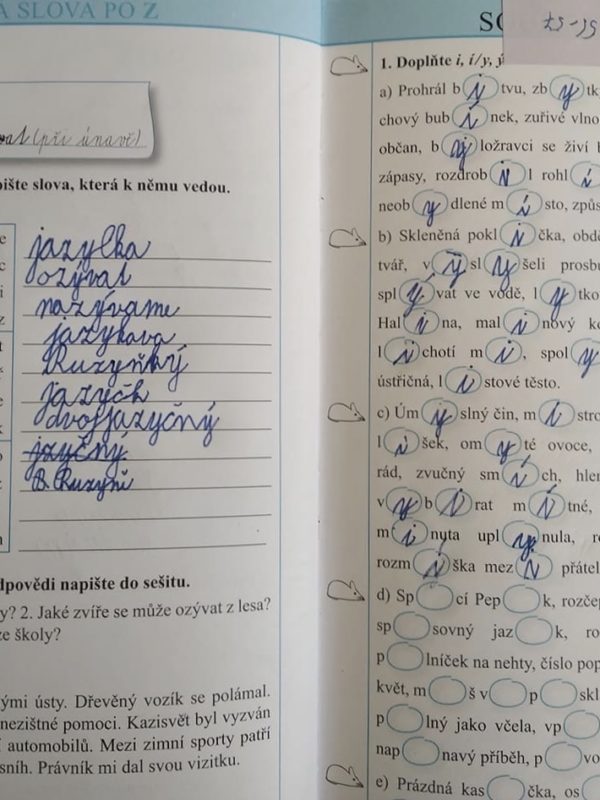 Á SLOVA PO Z
at (při únavě)
pište slova, která k němu vedou.
jazylka
ozýval
nazývame
jazykova
Ruzyňký
jazých
dvojjazyčný
jzyčný
B. Ruzyni
dpovědi napište do sešitu.
y? 2. Jaké zvíře se může ozývat z lesa?
ze školy?
ými ústy. Dřevěný vozík se polámal.
nezištné pomoci. Kazisvět byl vyzván
í automobilů. Mezi zimní sporty patří
sníh. Právník mi dal svou vizitku.
1. Doplňte i, í/y, ý
a) Prohrál b i tvu, zb y tk
chový bub í nek, zuřivé vlno
občan, b ý ložravci se živí
zápasy, rozdrob i l rohl í
neob y dlené m í sto, způs
b) Skleněná pokl i čka, obdo
tvář, v y sl y šeli prosbu
spl ý vat ve vodě, l y tko
Hal i na, mal i nový ko
l i chotí m i, spol y
ústřičná, l i stové těsto.
c) Úm y slný čin, m i stro
l i šek, om y té ovoce,
rád, zvučný sm í ch, hlem
v y b í rat m í tné,
m i nuta upl y nula, ro
rozm í ška mez i přátel
d) Sp cí Pep k, rozčep
sp sovný jaz k, ro
p lníček na nehty, číslo pop
květ, m š v p skl
p lný jako včela, vp
nap navý příběh, p vo
e) Prázdná kas čka, os